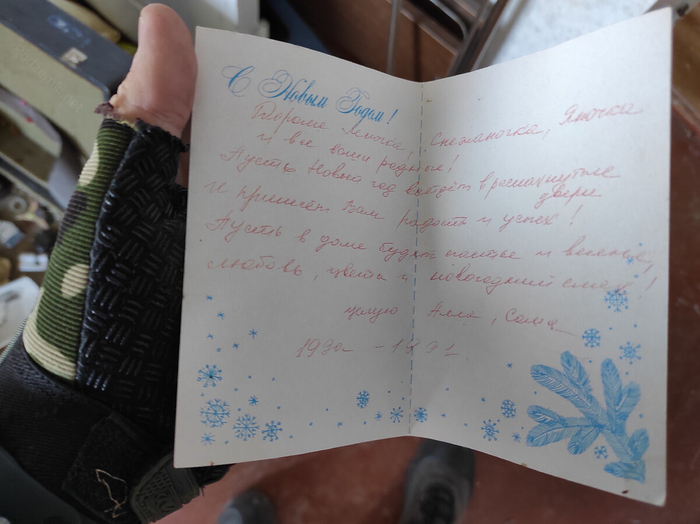 С Новым Годом!
Дорогие Снежаночка, Яночка
и все ваши родные!
Пусть Новый год войдёт в распахнутые
двери
И принесёт Вам радость и успех!
Пусть в доме будут счастье и веселье,
любовь, цветы и новогодний смех!
целую Алла, Саша
1990 - 1991